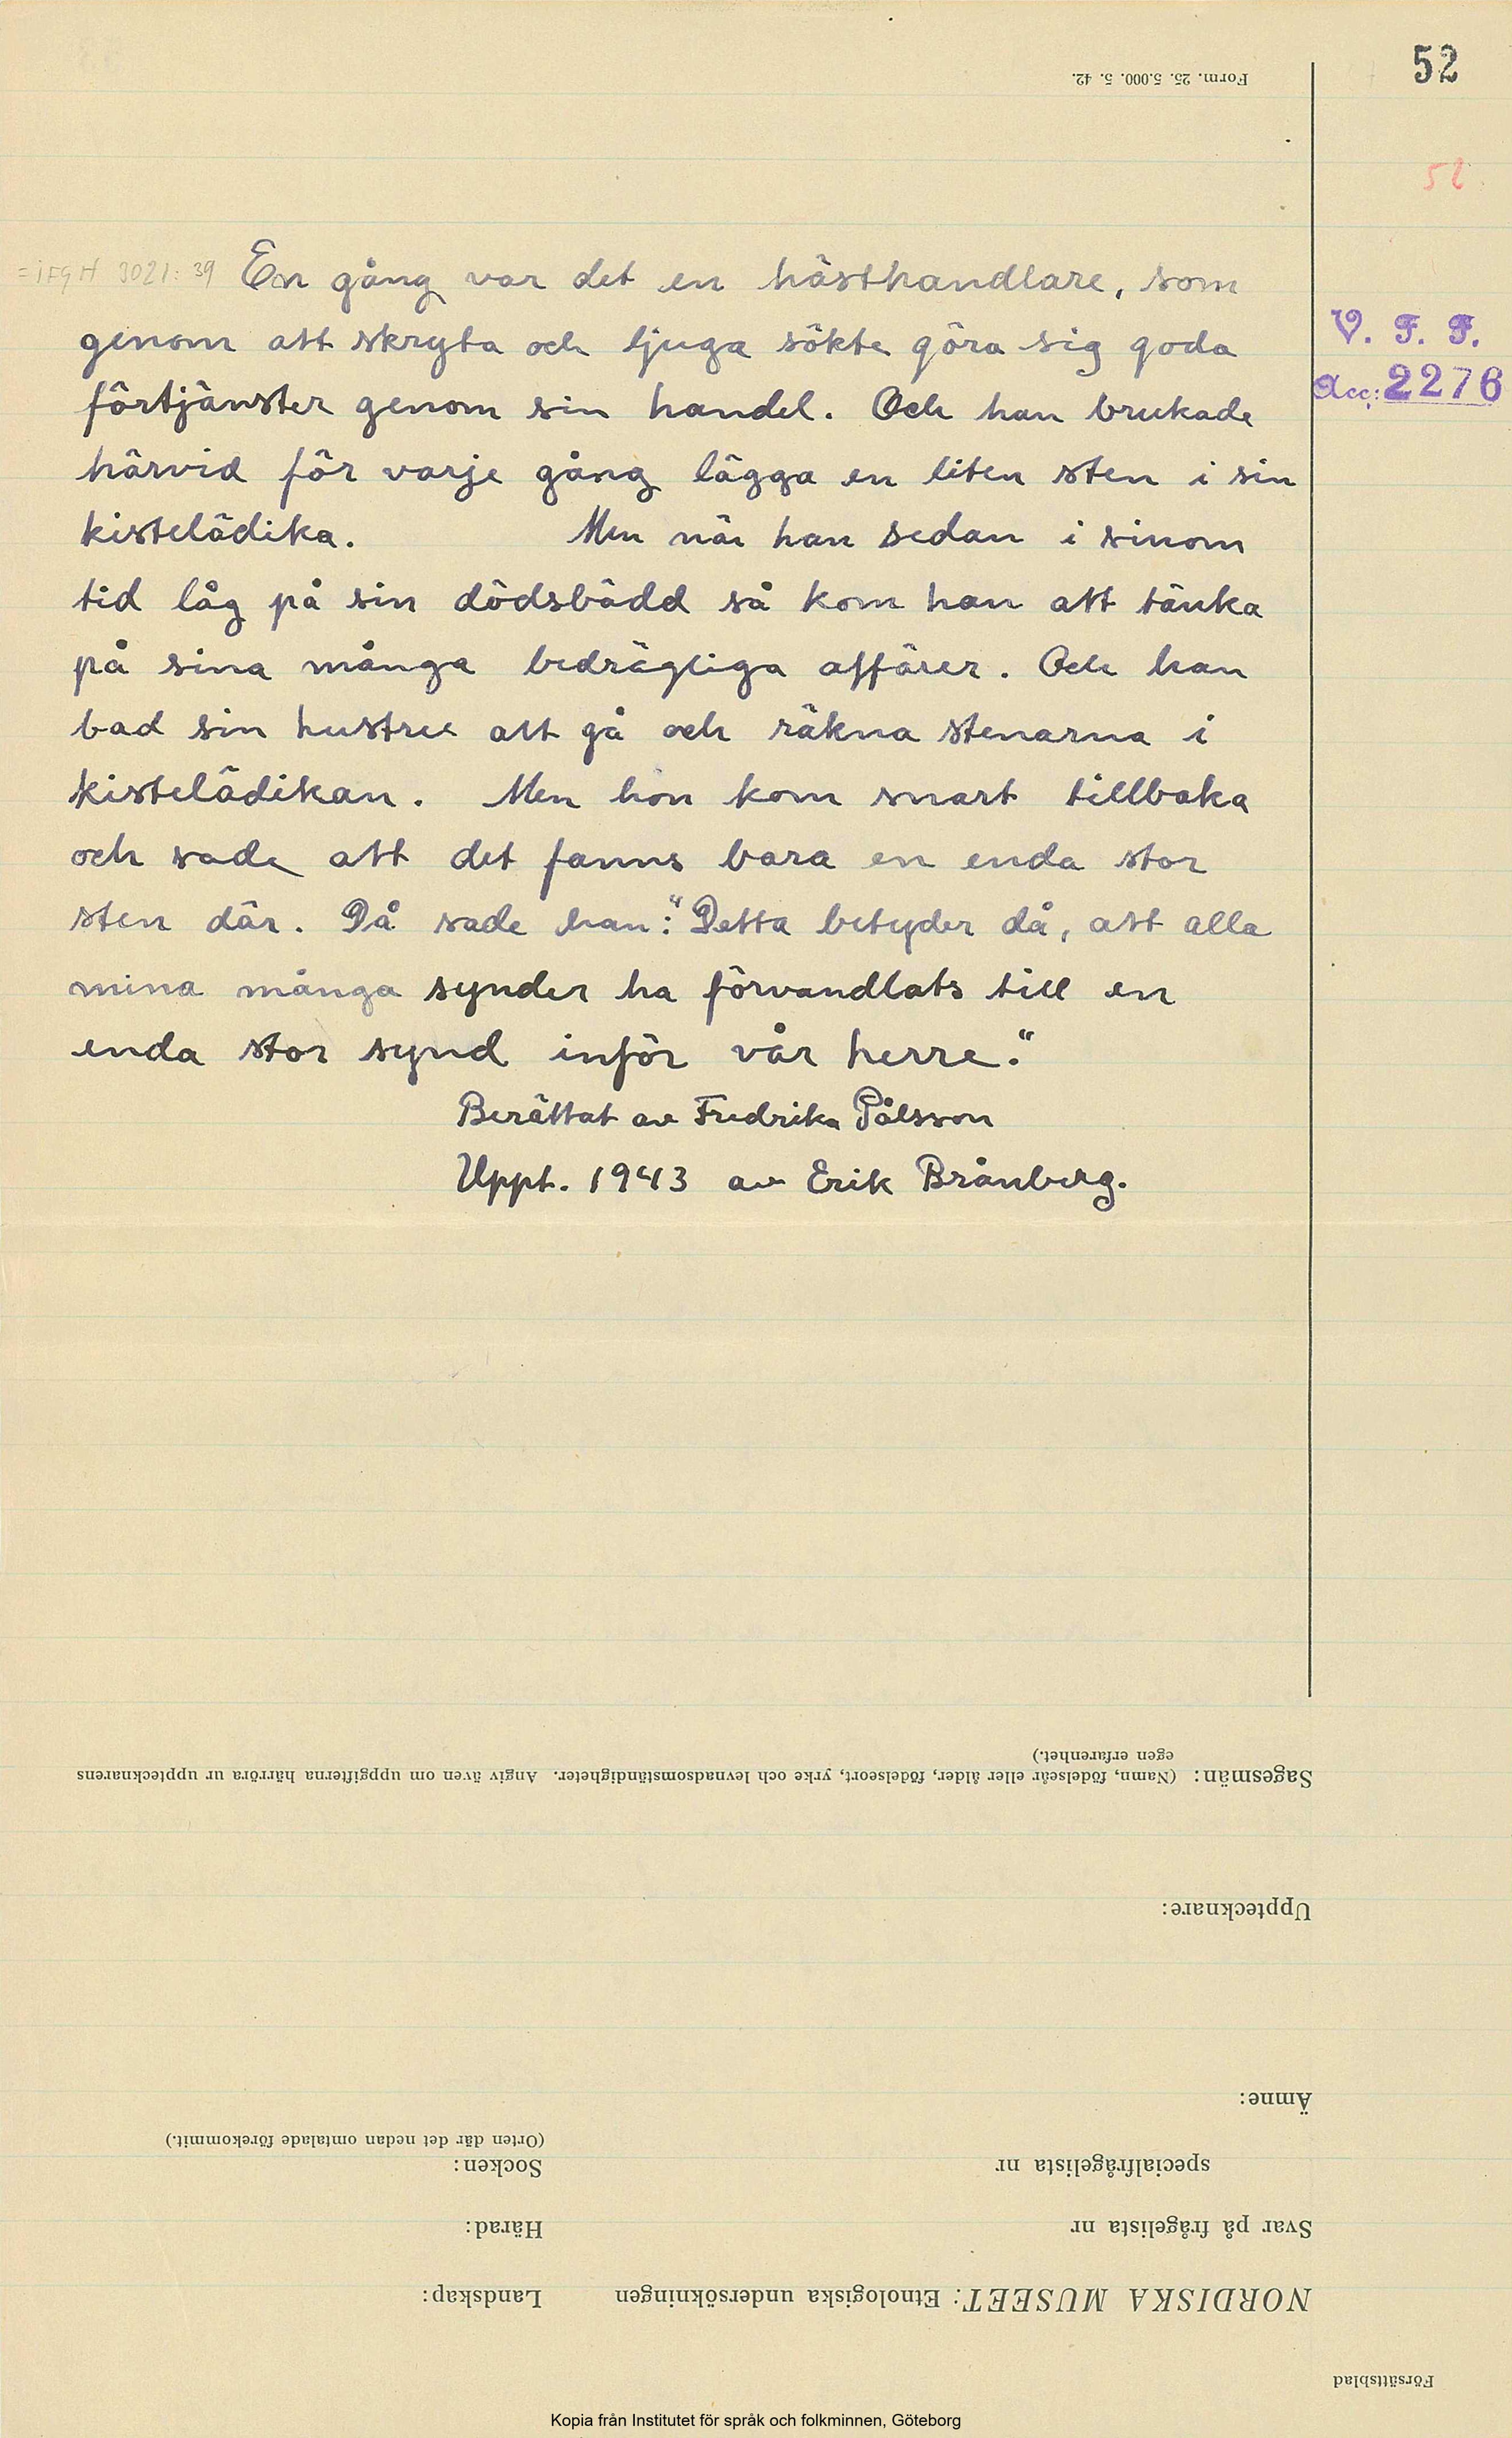 52
Form. 25. 5.000. 5. 42.
52
= IFGH 3021:39 En gång var det en hästhandlare, som
genom att skryta och ljuga sökte göra sig goda
V. F. F.
förtjänster genom sin handel. Och han brukade
Acc: 2276
härvid för varje gång lägga en liten sten i sin
kistelädika. Men när han sedan i sinom
tid låg på sin dödsbädd så kom han att tänka
på sina många bedrägliga affärer. Och han
bad sin hustru att gå och räkna stenarna i
kistelädikan. Men hon kom snart tillbaka
och sade att det fanns bara en enda stor
sten där. Då sade han: "Detta betyder då, att alla
mina många synder ha förvandlats till en
enda stor synd inför vår herre."
Berättat av Fredrika Pålsson
Uppt. 1943 av Erik Brånberg.
Försättsblad
NORDISKA MUSEET: Etnologiska undersökningen Landskap:
Svar på frågelista nr Härad:
specialfrågelista nr Socken:
(Orten där det nedan omtalade förekommit.)
Ämne:
Upptecknare:
Sagesmän: (Namn, födelseår eller ålder, födelseort, yrke och levnadsomständigheter. Angiv även om uppgifterna härröra ur upptecknarens
egen erfarenhet.)
Kopia från Institutet för språk och folkminnen, Göteborg